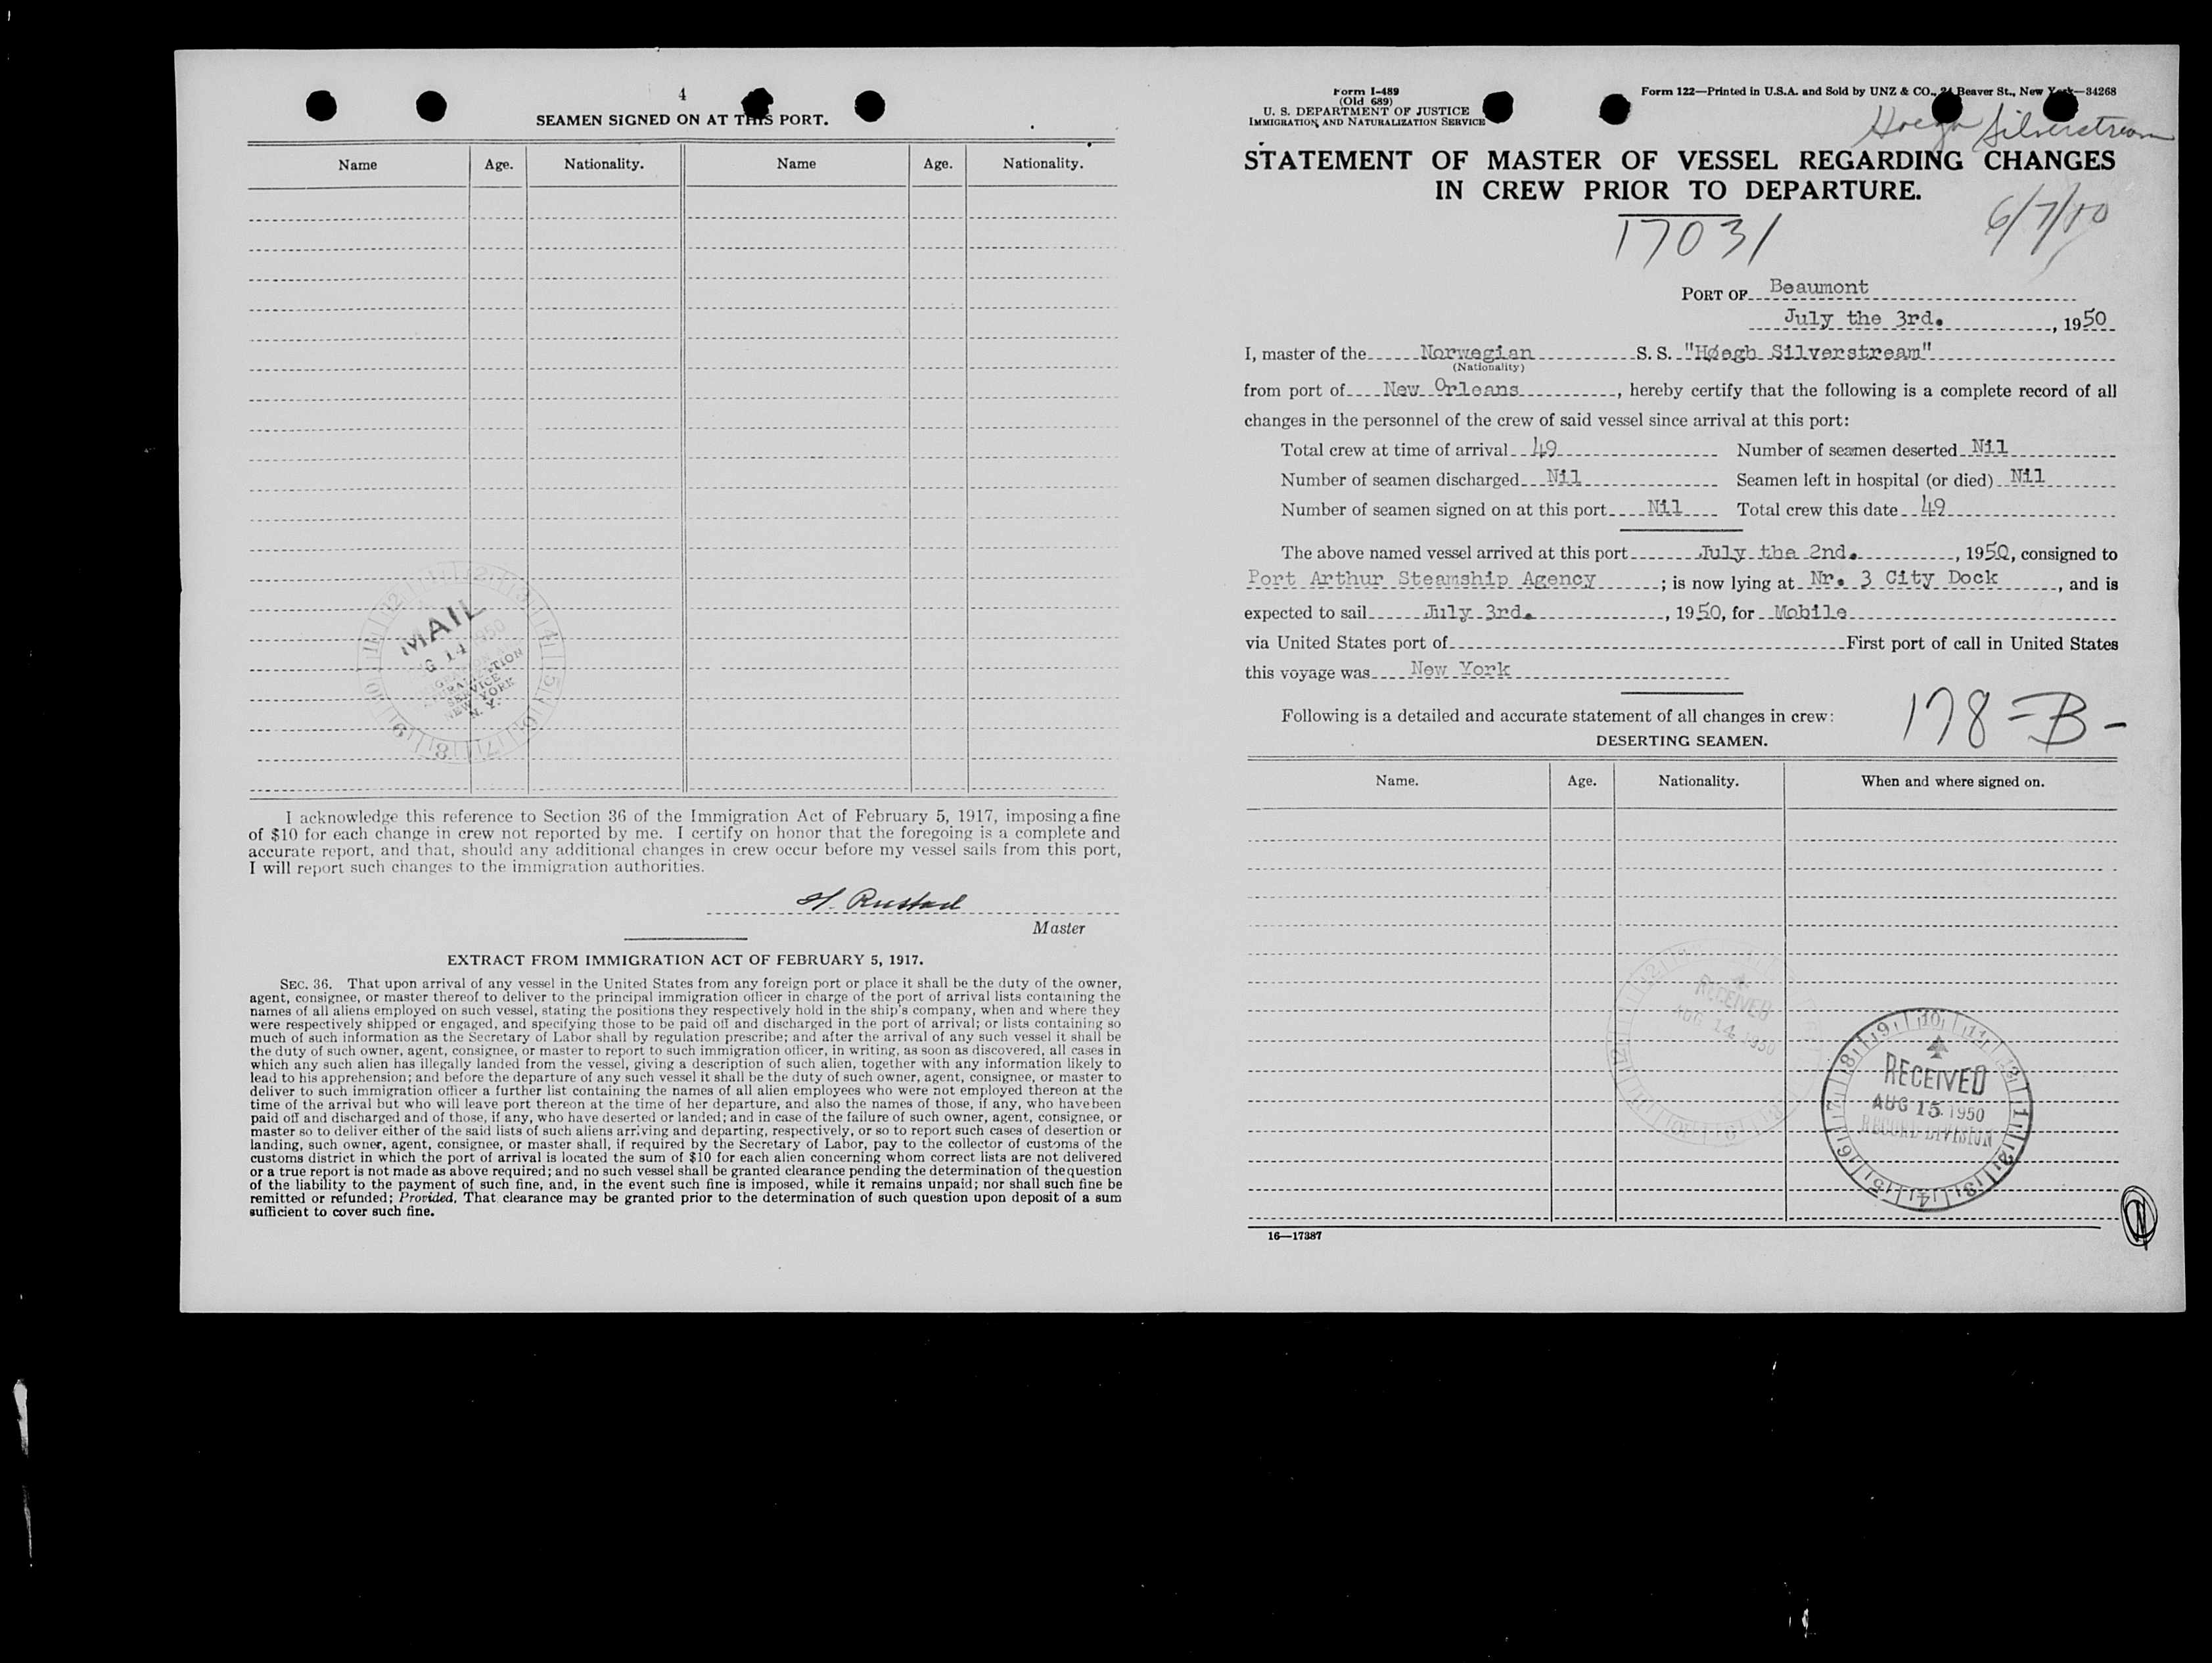 4
SEAMEN SIGNED ON AT THIS PORT.
Name Age. Nationality. Name Age. Nationality.
MAIL
G 14 1950
SERVICE
NEW YORK
N. Y.
I acknowledge this reference to Section 36 of the Immigration Act of February 5, 1917, imposing a fine
of $10 for each change in crew not reported by me. I certify on honor that the foregoing is a complete and
accurate report, and that, should any additional changes in crew occur before my vessel sails from this port,
I will report such changes to the immigration authorities.
H. Rustad
Master
EXTRACT FROM IMMIGRATION ACT OF FEBRUARY 5, 1917.
SEC. 36. That upon arrival of any vessel in the United States from any foreign port or place it shall be the duty of the owner,
agent, consignee, or master thereof to deliver to the principal immigration officer in charge of the port of arrival lists containing the
names of all aliens employed on such vessel, stating the positions they respectively hold in the ship's company, when and where they
were respectively shipped or engaged, and specifying those to be paid off and discharged in the port of arrival; or lists containing so
much of such information as the Secretary of Labor shall by regulation prescribe; and after the arrival of any such vessel it shall be
the duty of such owner, agent, consignee, or master to report to such immigration officer, in writing, as soon as discovered, all cases in
which any such alien has illegally landed from the vessel, giving a description of such alien, together with any information likely to
lead to his apprehension; and before the departure of any such vessel it shall be the duty of such owner, agent, consignee, or master to
deliver to such immigration officer a further list containing the names of all alien employees who were not employed thereon at the
time of the arrival but who will leave port thereon at the time of her departure, and also the names of those, if any, who have been
paid off and discharged and of those, if any, who have deserted or landed; and in case of the failure of such owner, agent, consignee, or
master so to deliver either of the said lists of such aliens arriving and departing, respectively, or so to report such cases of desertion or
landing, such owner, agent, consignee, or master shall, if required by the Secretary of Labor, pay to the collector of customs of the
customs district in which the port of arrival is located the sum of $10 for each alien concerning whom correct lists are not delivered
or a true report is not made as above required; and no such vessel shall be granted clearance pending the determination of the question
of the liability to the payment of such fine, and, in the event such fine is imposed, while it remains unpaid; nor shall such fine be
remitted or refunded; Provided, That clearance may be granted prior to the determination of such question upon deposit of a sum
sufficient to cover such fine.
Form I-489
(Old 689)
U. S. DEPARTMENT OF JUSTICE
IMMIGRATION AND NATURALIZATION SERVICE
Form 122—Printed in U.S.A. and Sold by UNZ & CO., 24 Beaver St., New York—34268
Hoegh Silverstream
STATEMENT OF MASTER OF VESSEL REGARDING CHANGES
IN CREW PRIOR TO DEPARTURE.
17031
6/7/50
PORT OF Beaumont
July the 3rd. , 1950
I, master of the Norwegian S. S. "Høegh Silverstream"
(Nationality)
from port of New Orleans , hereby certify that the following is a complete record of all
changes in the personnel of the crew of said vessel since arrival at this port:
Total crew at time of arrival 49 Number of seamen deserted Nil
Number of seamen discharged Nil Seamen left in hospital (or died) Nil
Number of seamen signed on at this port Nil Total crew this date 49
The above named vessel arrived at this port July the 2nd. , 1950, consigned to
Port Arthur Steamship Agency ; is now lying at Nr. 3 City Dock , and is
expected to sail July 3rd. , 1950, for Mobile
via United States port of First port of call in United States
this voyage was New York
178-B-
Following is a detailed and accurate statement of all changes in crew:
DESERTING SEAMEN.
Name. Age. Nationality. When and where signed on.
RECEIVED
AUG 14 1950
RECEIVED
AUG 15 1950
RECORD DIVISION
16—17387